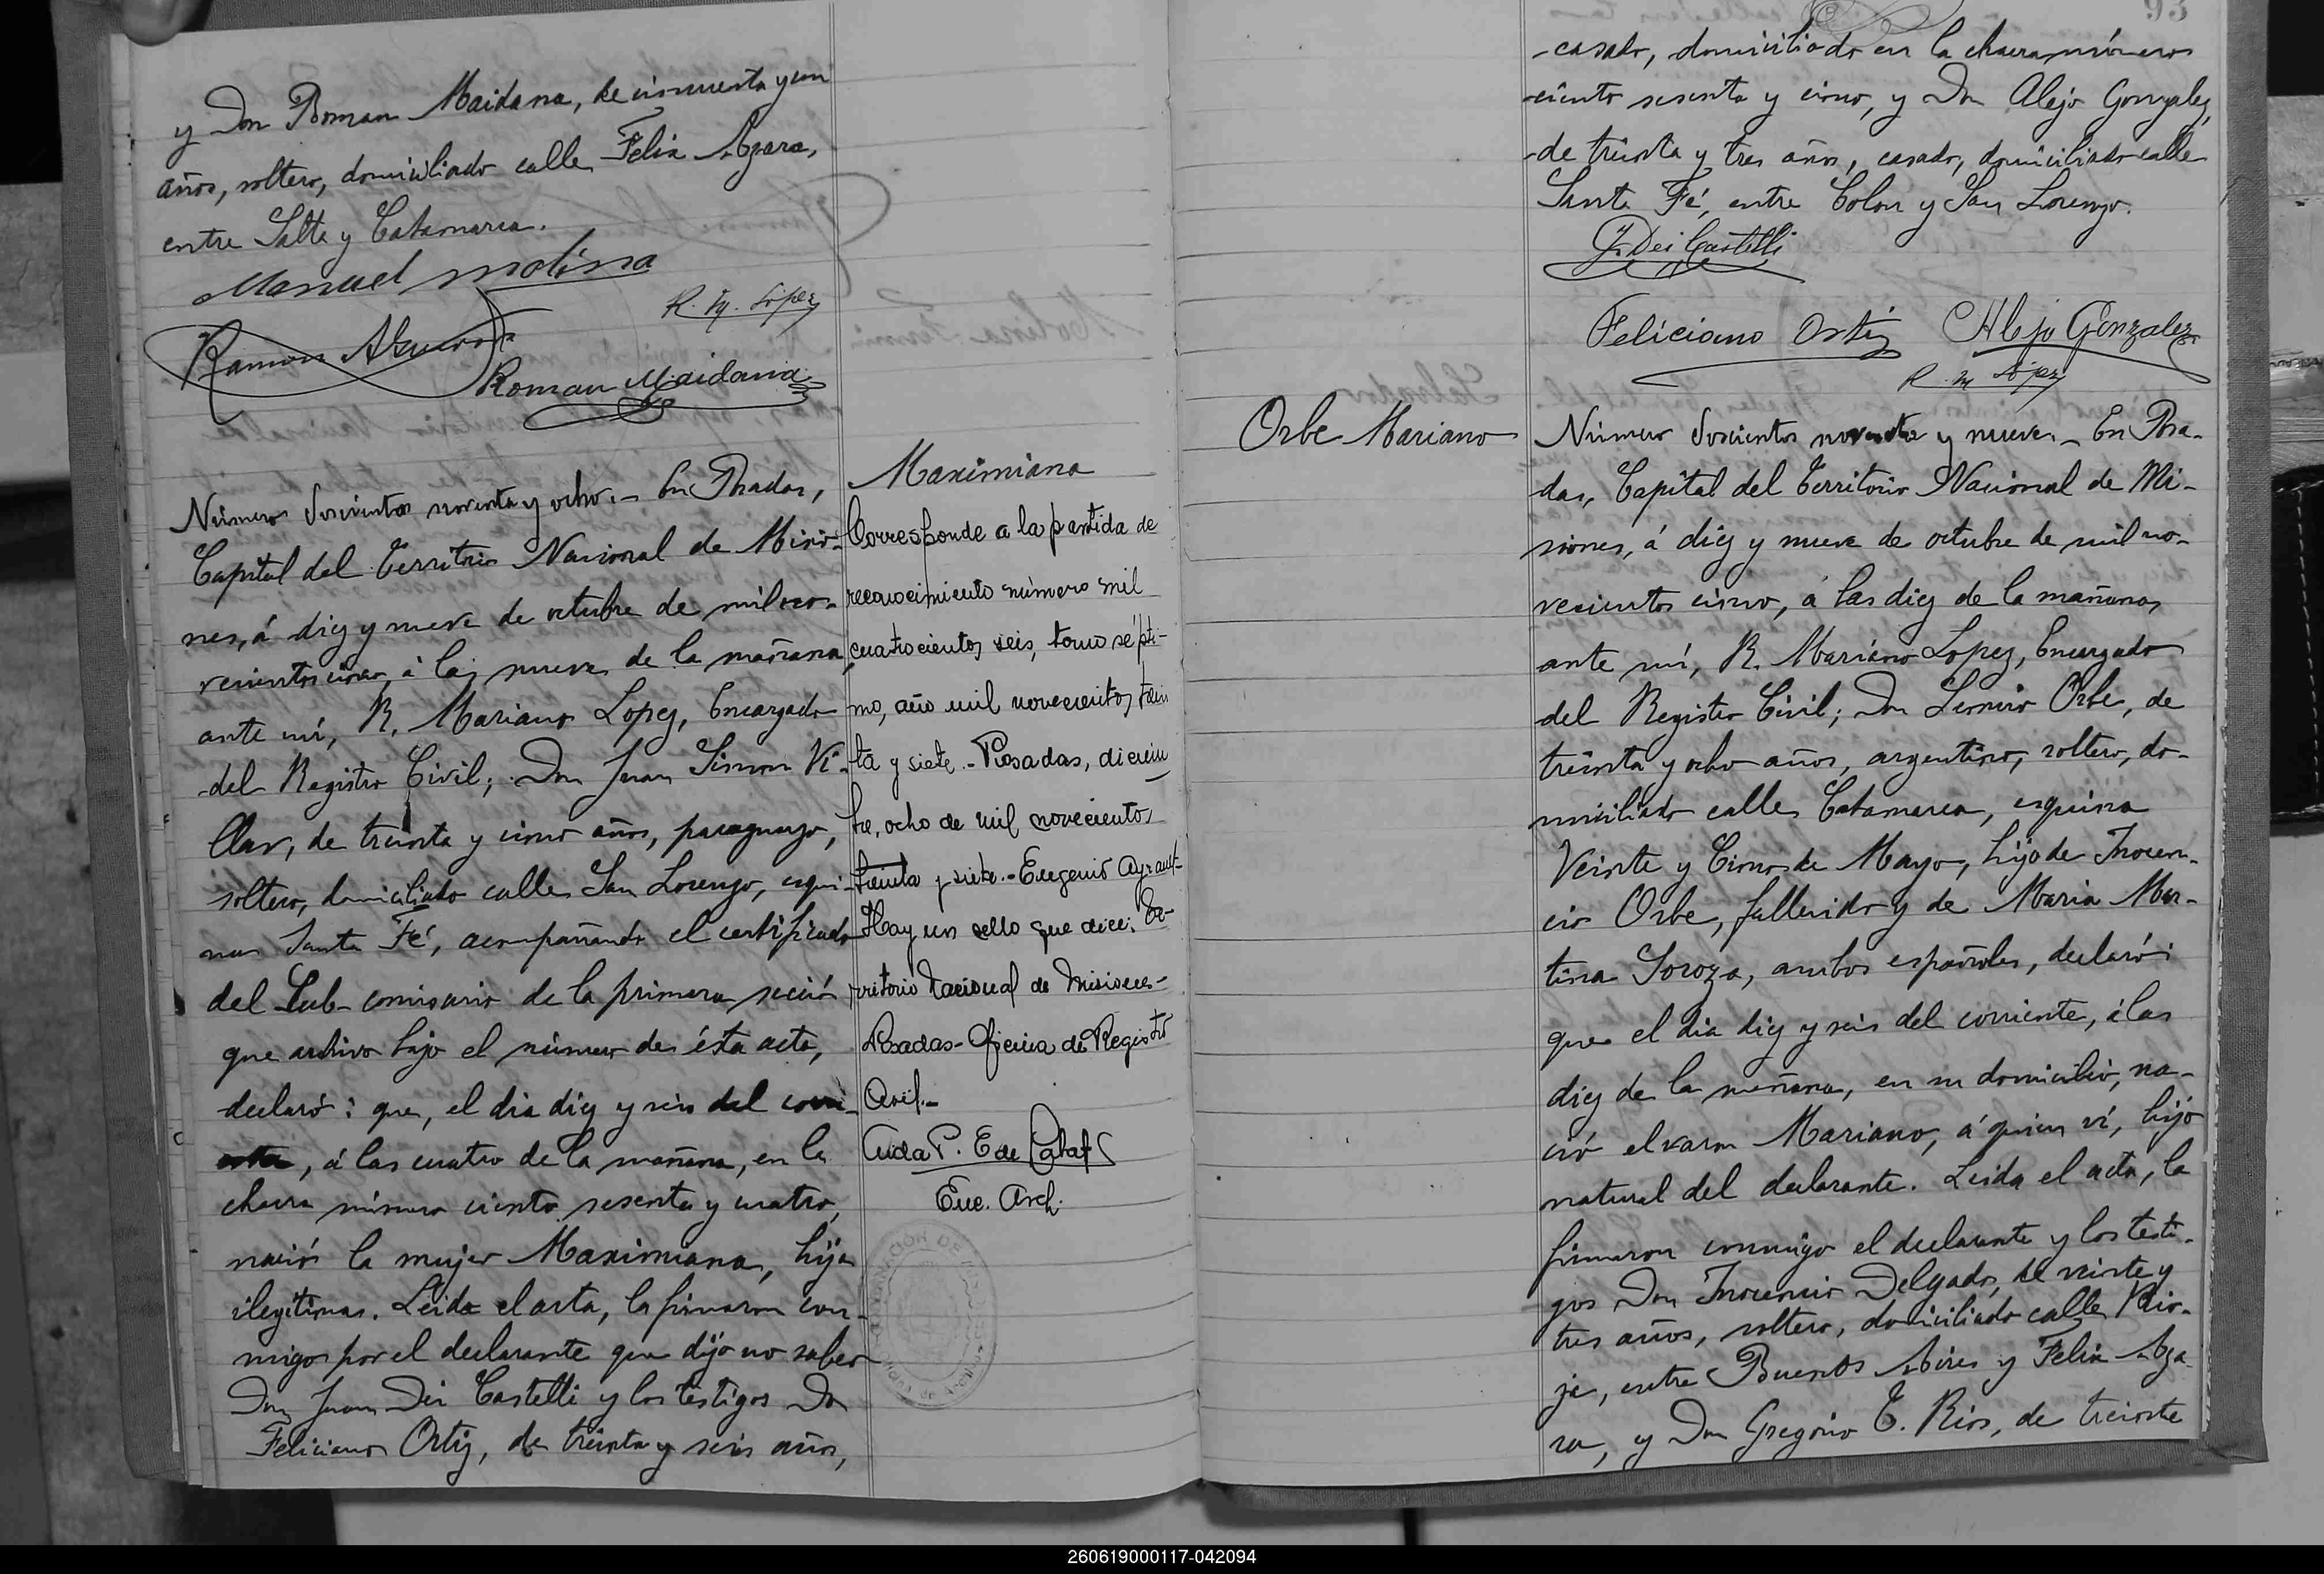 y Don Roman Maidana, de cincuenta y un
años, soltero, domiciliado calle Felix Azara,
entre Salta y Catamarca.
Manuel Molina
R. M. Lopez
Ramon
Roman Maidana
Número doscientos noventa y ocho.- En Posadas,
Capital del Territorio Nacional de Misio-
nes, á diez y nueve de octubre de mil no-
vecientos cinco, á las nueve de la mañana,
ante mí, R. Mariano Lopez, Encargado
del Registro Civil; Don Juan Simon Vi-
llar, de treinta y cinco años, paraguayo,
soltero, domiciliado calle San Lorenzo, esqui-
na Santa Fé, acompañando el certificado
del Sub-comisario de la primera sección
que archivo bajo el número de ésta acta,
declaró: que, el dia diez y seis del corri-
, á las cuatro de la mañana, en la
chacra número ciento sesenta y cuatro,
nació la mujer Maximiana, hija
ilegítima. Leida el acta, la firmaron con-
migo por el declarante que dijo no saber
Don Juan Dei Castelli y los testigos Don
Feliciano Ortiz, de treinta y seis años,
Maximiana
Corresponde a la partida de
reconocimiento número mil
cuatrocientos seis, tomo sépti-
mo, año mil novecientos trein
ta y siete.- Posadas, diciem
bre, ocho de mil novecientos
treinta y siete.- Eugenio
Hay un sello que dice: Te-
rritorio Nacional de Misiones-
Posadas- Oficina de Registro
Civil.-
Enc. Arch.
93
casado, domiciliado en la chacra número
ciento sesenta y cinco, y Don Alejo Gonzalez,
de treinta y tres años, casado, domiciliado calle
Santa Fé, entre Colon y San Lorenzo.
J. Dei Castelli
Feliciano Ortiz Alejo Gonzalez
R. M. Lopez
Orbe Mariano
Número doscientos noventa y nueve.- En Posa-
das, Capital del Territorio Nacional de Mi-
siones, á diez y nueve de octubre de mil no-
vecientos cinco, á las diez de la mañana,
ante mí, R. Mariano Lopez, Encargado
del Registro Civil; Don Orbe, de
treinta y ocho años, argentino, soltero, do-
miciliado calle Catamarca, esquina
Veinte y Cinco de Mayo, hijo de Inocen-
cio Orbe, fallecido y de Maria Mar-
tina Soroza, ambos españoles, declaró:
que el dia diez y seis del corriente, á las
diez de la mañana, en su domicilio, na-
ció el varon Mariano, á quien ví, hijo
natural del declarante. Leida el acta, la
firmaron conmigo el declarante y los testi-
gos Don Inocencio Delgado, de veinte y
tres años, soltero, domiciliado calle Rio-
ja, entre Buenos Aires y Felix Aza-
ra, y Don Gregorio E. Rios, de treinta
260619000117-042094